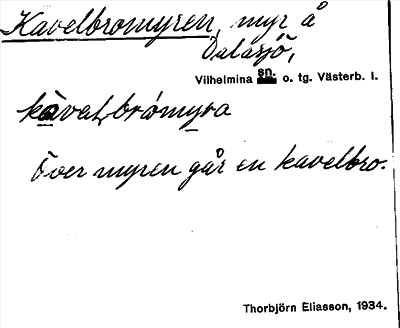 Kavelbromyren, myr å
Dalasjö,
Vilhelmina sn. o. tg. Västerb. l.
kàvalbrómyra
Över myren går en kavelbro.
Thorbjörn Eliasson, 1934.